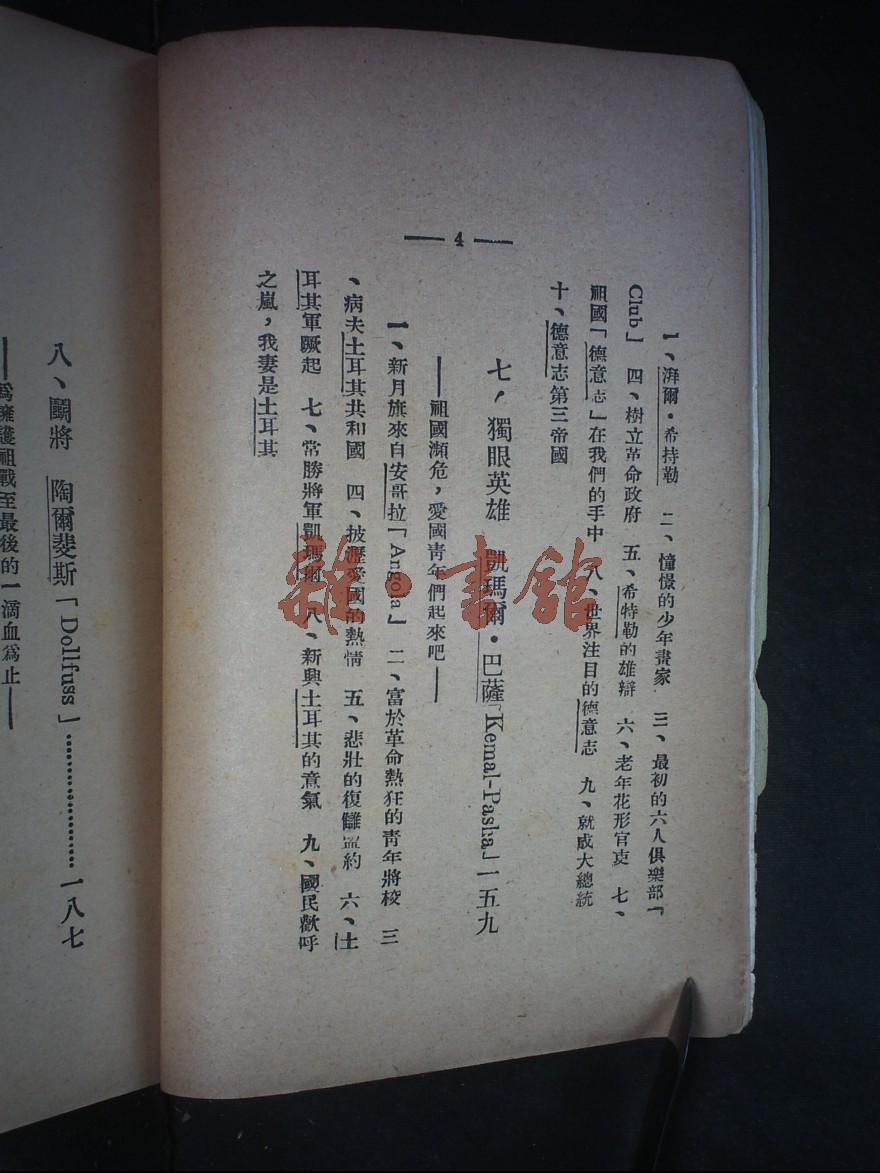 — 4 —
一、湃爾・希持勒　二、憧憬的少年畫家　三、最初的六人俱樂部「
Club」　四、樹立革命政府　五、希特勒的雄辯　六、老年花形官吏　七、
祖國「德意志」在我們的手中　八、世界注目的德意志　九、就成大總統
十、德意志第三帝國
七，獨眼英雄　凱瑪爾・巴薩「Kemal-Pasha」一五九
——祖國瀕危，愛國青年們起來吧——
一、新月旗來自安哥拉「Angola」　二、富於革命熱狂的青年將校　三
、病夫土耳其共和國　四、披瀝愛國的熱情　五、悲壯的復讎盟約　六、土
耳其軍蹶起　七、常勝將軍凱瑪爾　八、新興土耳其的意氣　九、國民歡呼
之嵐，我妻是土耳其
八、鬭將　陶爾斐斯「Dollfuss」…………………一八七
——爲擁護祖戰至最後的一滴血爲止——
雜·書館